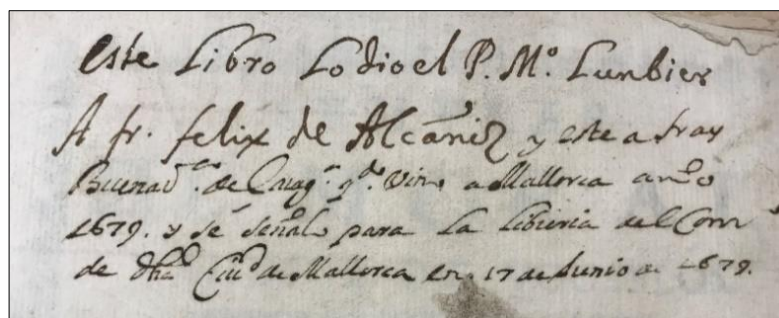 Este Libro Lo dio el P. Mº. Lunbier
A fr. felix de Alcañiz y este a fray
Buenavª. de Çaragª. qdº. Vino a Mallorca año
1679. y se señalo para La Libreria del Conᵗº
de dhª Ciuᵈ de Mallorca en 17 de Junio de 1679.